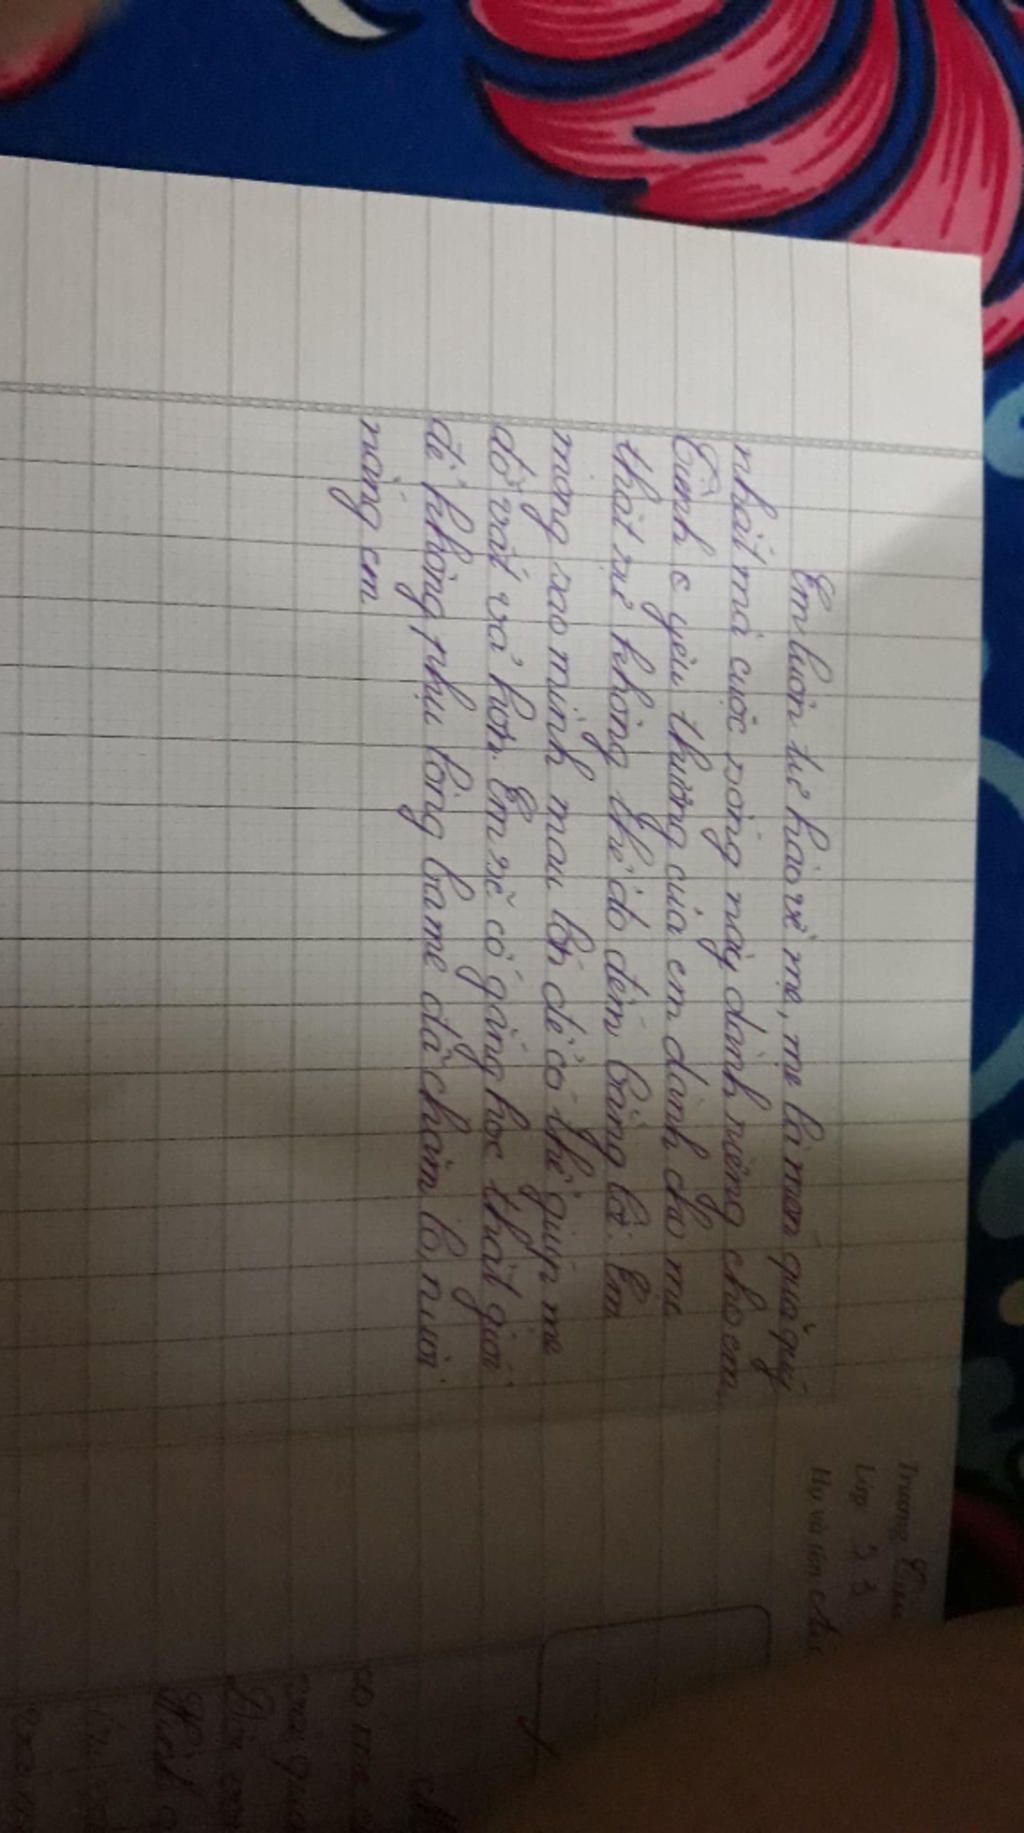 Em luôn tự hào về mẹ, mẹ là món quà quý
nhất mà cuộc sống này dành riêng cho em.
Tình c yêu thương của em dành cho mẹ
thật sự không thể đo đếm bằng lời. Em
mong sao mình mau lớn để có thể giúp mẹ
đỡ vất vả hơn. Em sẽ cố gắng học thật giỏi
để không phụ lòng ba mẹ đã chăm lo, nuôi
nấng em.
Trường
Lớp 3
Họ và tên